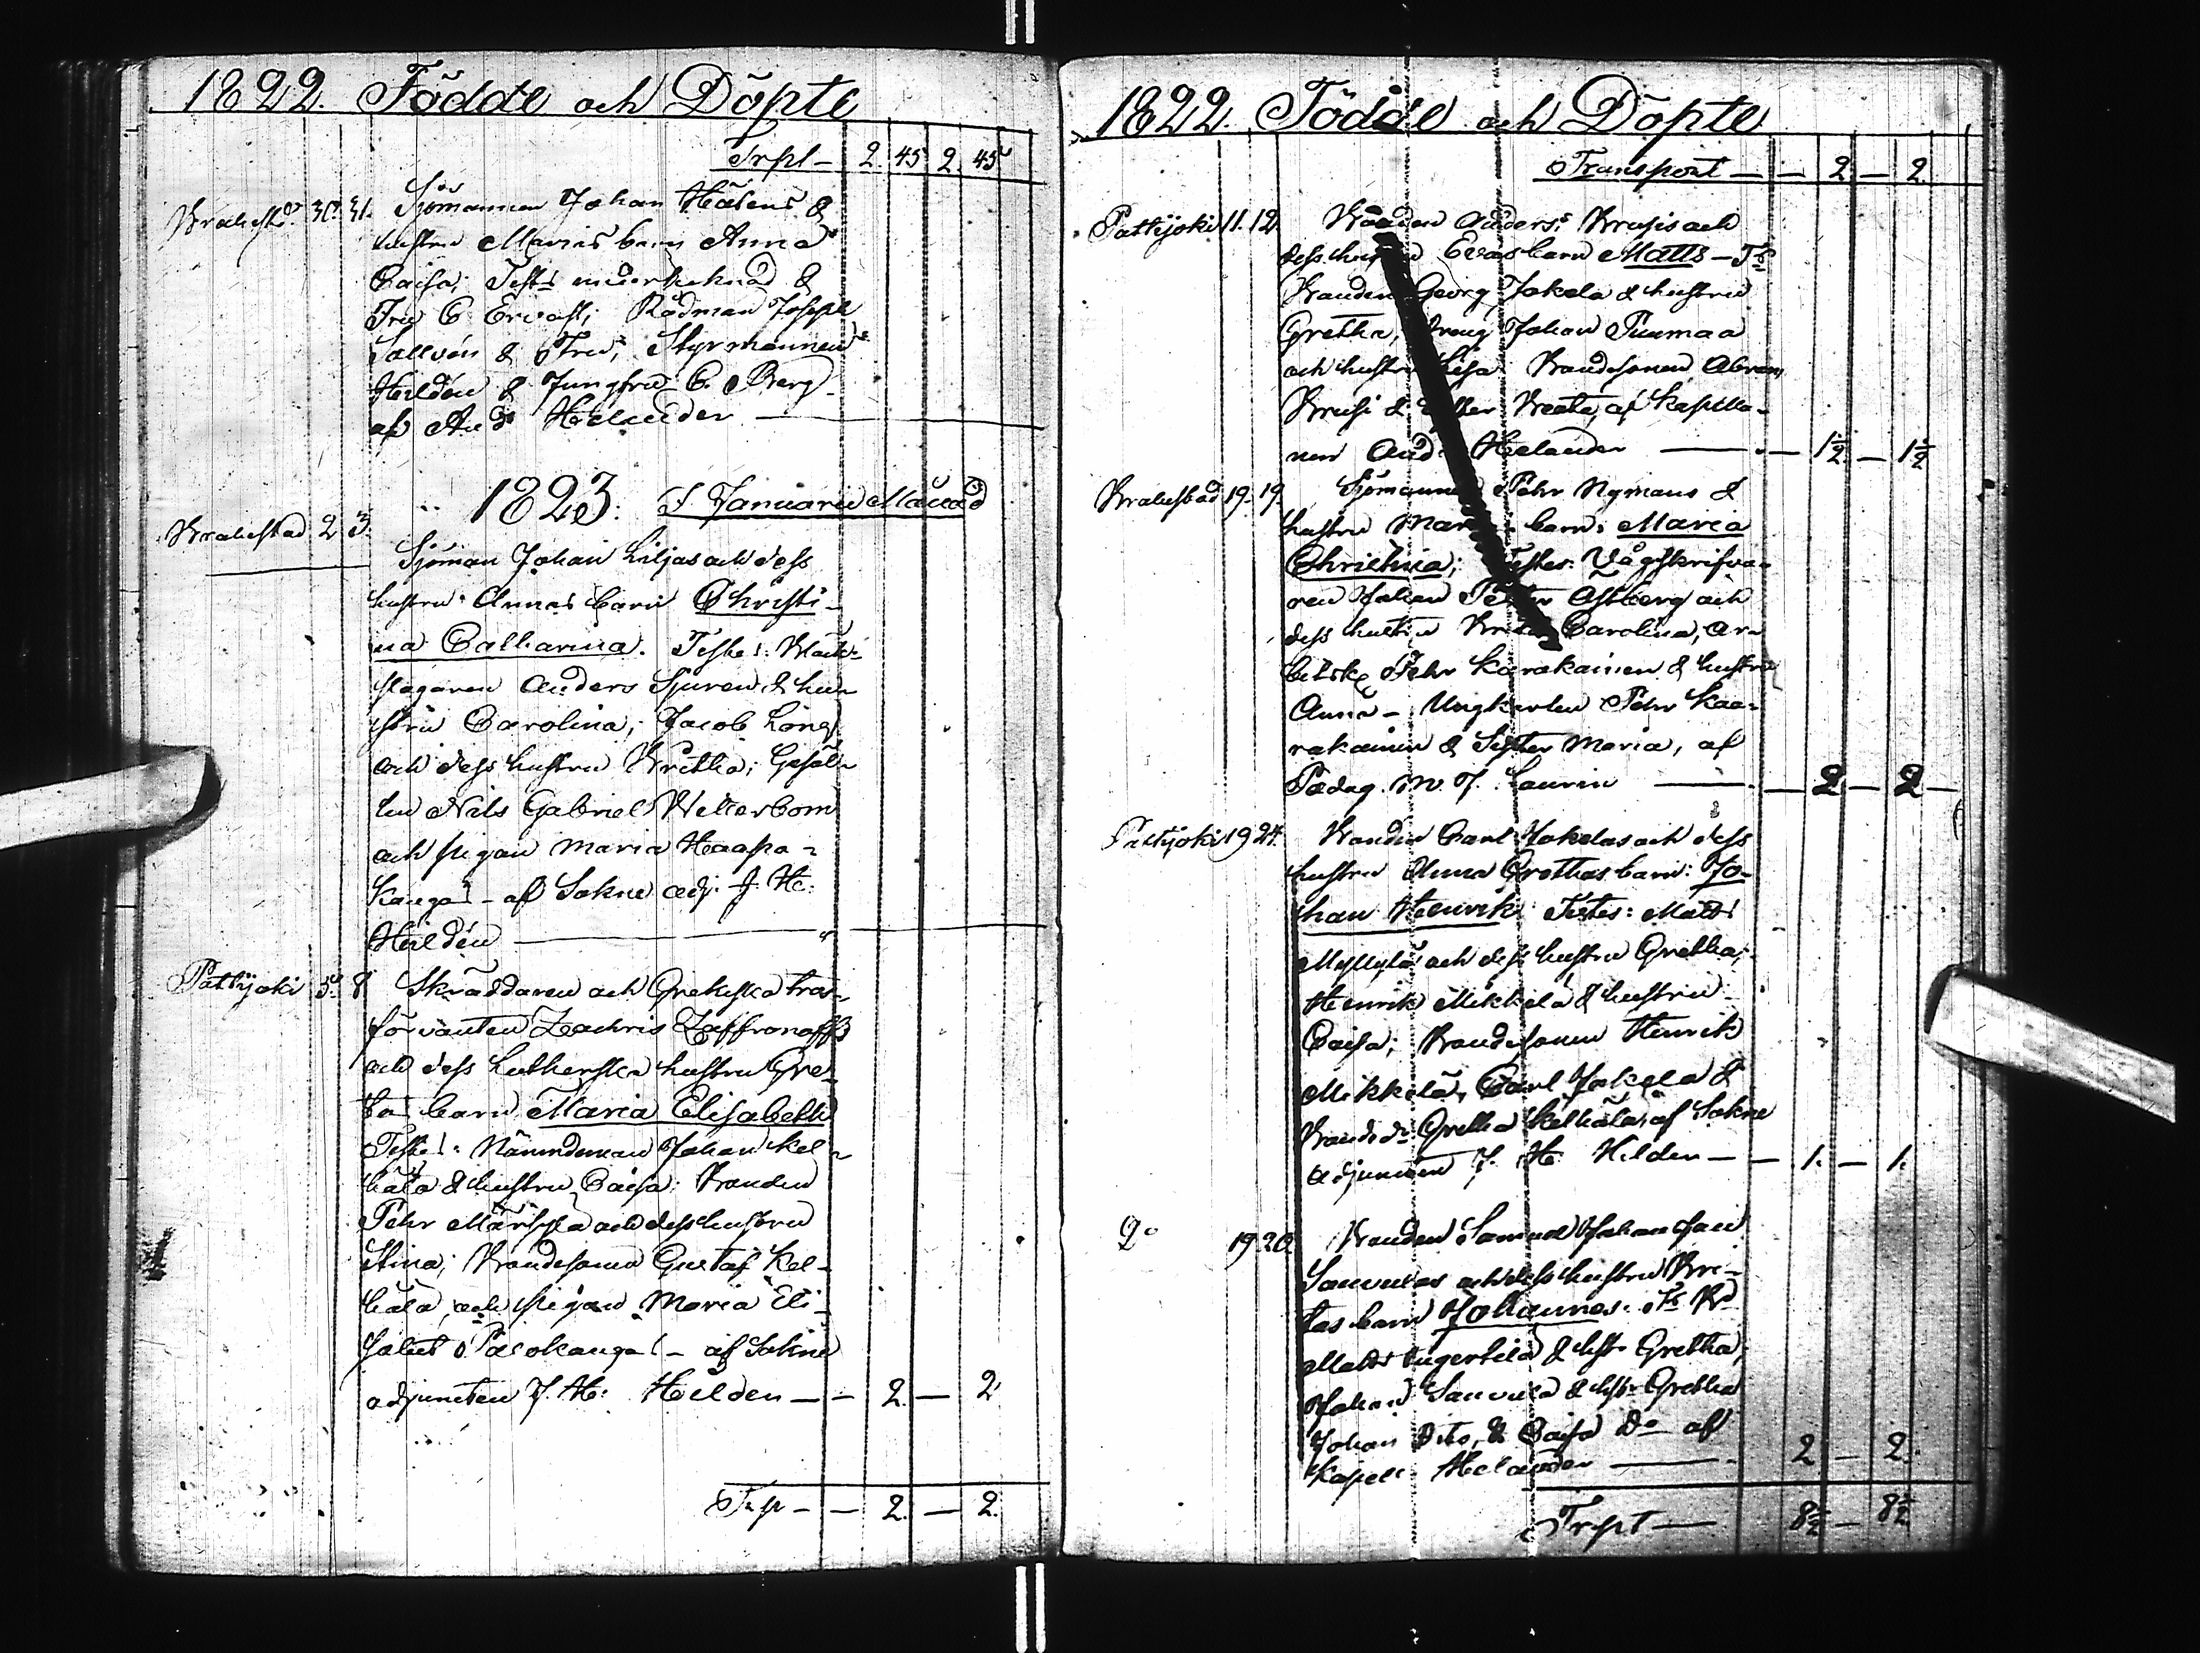 1822. Födde och Döpte
Trpt — 2. 45 2. 45
Brahestad 30. 31. Sjömannen Johan Hätens &
hustru Marias barn Anna
Caisa; Test: undertecknad &
Fru C. Ervast; Rådman Joseph
Sallvén & Fru; Styrmannen
Heldén & Jungfru C. Berg
af And: Helander —
1823. I Januarii Månad
Brahestad 2 3. Sjöman Johan Liljas och dess
hustru Annas barn Christi-
na Catharina. Testes:
Anders Sjuren & hu-
stru Carolina; Jacob Lång
och dess hustru Britha; Gesäl-
len Nils Gabriel Wetterbom
och pigan Maria Haapa-
kangas — af Sokne adj: J. H:
Hildén —
Pattijoki 5. 8 Skräddaren och Grekiska tros-
förvanten Zachris Zaffronoffs
och dess Lutherska hustru Gre-
tas barn Maria Elisabeth
Testes: Nämndeman Johan Kel-
hälä & hustru Caisa; Bonden
Pehr och dess hustru
Stina; Bondesonen Gustaf Kel-
hälä, och pigan Maria Eli-
sabet Palokangas — af Sokne
adjuncten J. H: Hilden — — 2. — 2.
Trp — — 2. — 2.
1822. Födde och Döpte
Transport — — 2 — 2.
Pattijoki 11. 12. Bonden Anders Krusis och
dess hustru Evas barn Matts — Ts
Bonden Georg Jokela & hustru
Gretha, Dreng Johan Tuomaa
och hustru Lisa Bondesonen Abram
Krusi & Syster Beata, af Kapella-
nen And: Helander — — 1½ — 1½
Brahestad 19. 19. Sjömannen Pehr Nymans &
hustru Marias barn: Maria
Christina; Testes: Vågskrifva-
ren Johan Petter Astberg och
dess hustru Brita Carolina, Ar-
betsk. Pehr Karakainen & hustru
Anna — Ungkarlen Pehr Kaa-
rakainen & Syster Maria, af
Pædag. M. J. Laurin — — 2 — 2 —
Pattijoki 19 24. Bonden Carl Jokelas och dess
hustru Anna Grethas barn: Jo-
han Henrik; Testes: Matts
Myllylä och dess hustru Gretha;
Henrik Mikkelä & hustru
Caisa; Bondesonen Henrik
Mikkelä, Carl Jokela &
Bonded: Gretha Kelhälä, af Sokne
adjuncten J. H: Hilden — — 1. — 1.
Do 19 20. Bonden Samuel Johansson
Sauvulas och dess hustru Bri-
tas barn Johannes. Ts Bd
Matts & hst: Gretha;
Johan Sauvula & hst: Gretha
Johan Dito, & Caisa Do af
Kapell: Helander — 2 — 2.
Trpt — 8½ — 8½